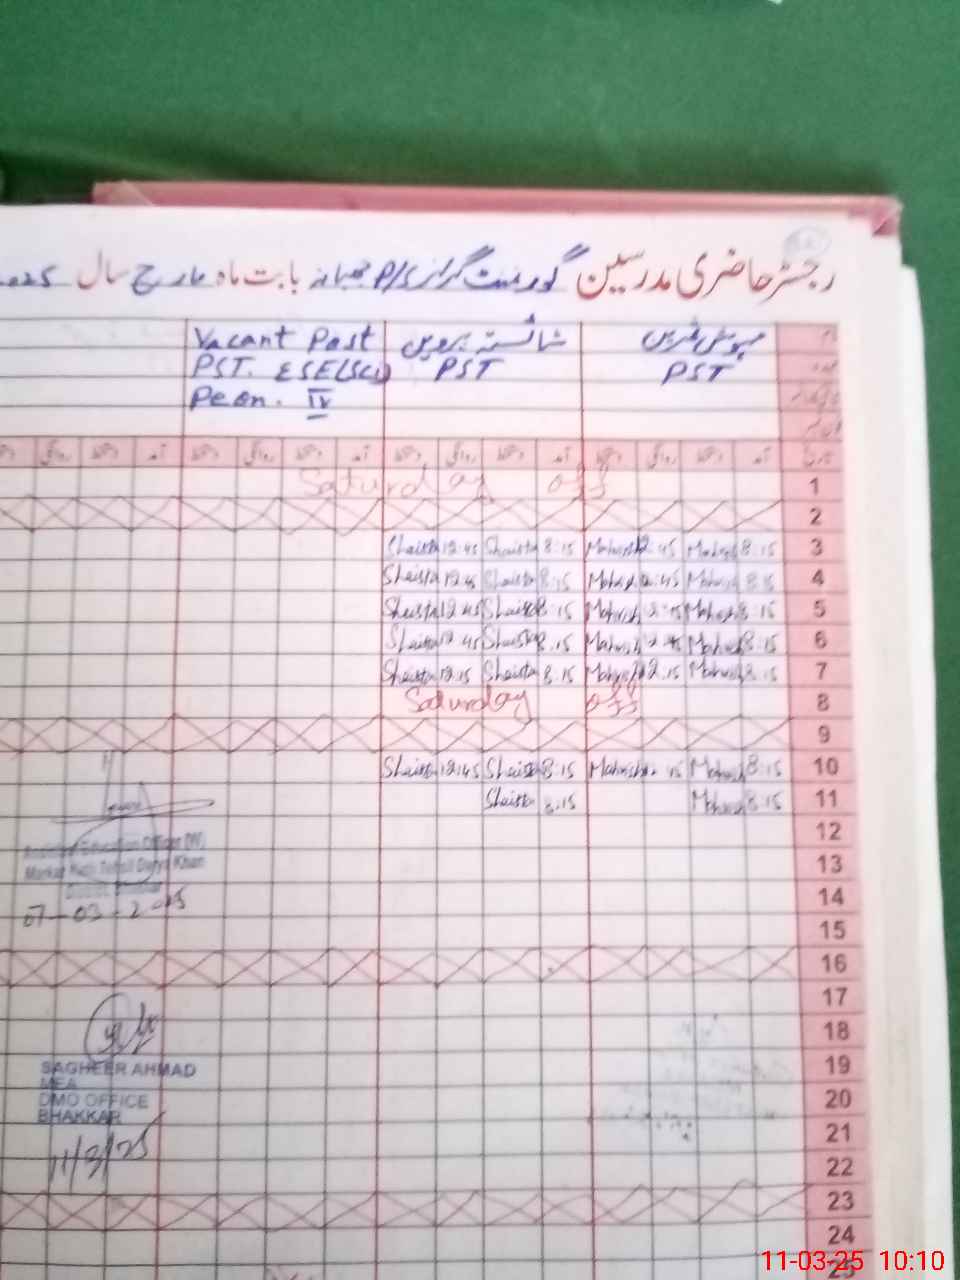 رجسٹر حاضری مدرسین گورنمنٹ گرلز P/S بابت ماہ مارچ سال 2025
مہوش شیریں
PST
شائستہ پروین
PST
Vacant Post
PST. ESE(Sci)
Peon. IV
آمد دستخط روانگی دستخط آمد دستخط روانگی دستخط آمد دستخط روانگی دستخط آمد دستخط روانگی
1 Saturday off
2
3 Shaista 12:45 Shaista 8:15 Mahwish 12:45 Mahwish 8:15
4 Shaista 12:45 Shaista 8:15 Mahwish 12:45 Mahwish 8:15
5 Shaista 12:45 Shaista 8:15 Mahwish 12:45 Mahwish 8:15
6 Shaista 12:45 Shaista 8:15 Mahwish 12:45 Mahwish 8:15
7 Shaista 12:15 Shaista 8:15 Mahwish 12:15 Mahwish 8:15
8 Saturday off
9
10 Shaista 12:45 Shaista 8:15 Mahwish 12:45 Mahwish 8:15
11 Shaista 8:15 Mahwish 8:15
12
13
14
15
16
17
18
19
20
21
22
23
24
25
Education Officer (W)
Markaz Tehsil Darya Khan
District Bhakkar
07-03-2025
SAGHEER AHMAD
MEA
DMO OFFICE
BHAKKAR
11/3/25
11-03-25 10:10